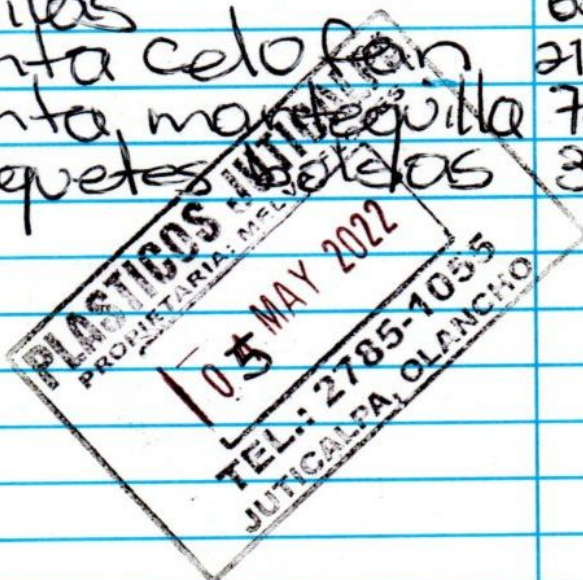 nta celofan 21
nta, mantequilla 7
quetes bolsas 3
PLASTICOS JUTICALPA
PROPIETARIA: MEL
05 MAY 2022
TEL.: 2785-1055
JUTICALPA, OLANCHO